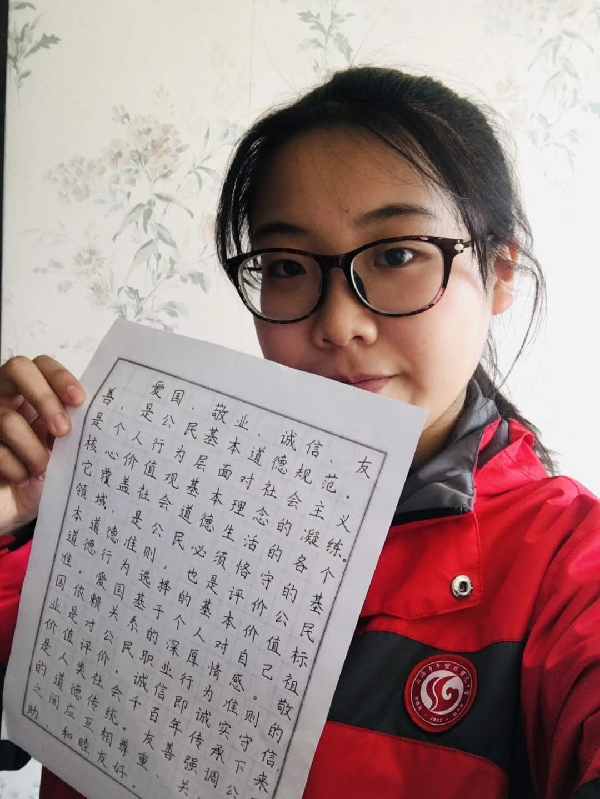 爱国、敬业、诚信、友
善,是公民基本道德规范,
是个人行为层面对社会主义
核心价值观基本理念的凝练。
它覆盖社会道德生活的各个
领域,是公民必须恪守的基
本道德准则,也是评价公民
道德行为选择的基本价值标
准。爱国基于个人对自己祖
国依赖关系的深厚情感。敬
业是对公民职业行为准则的
价值评价 诚信即诚实守信,
是人类社会千百年传承下来
的道德传统。友善强调公
之间应互相尊重、 关
助 和睦友好。